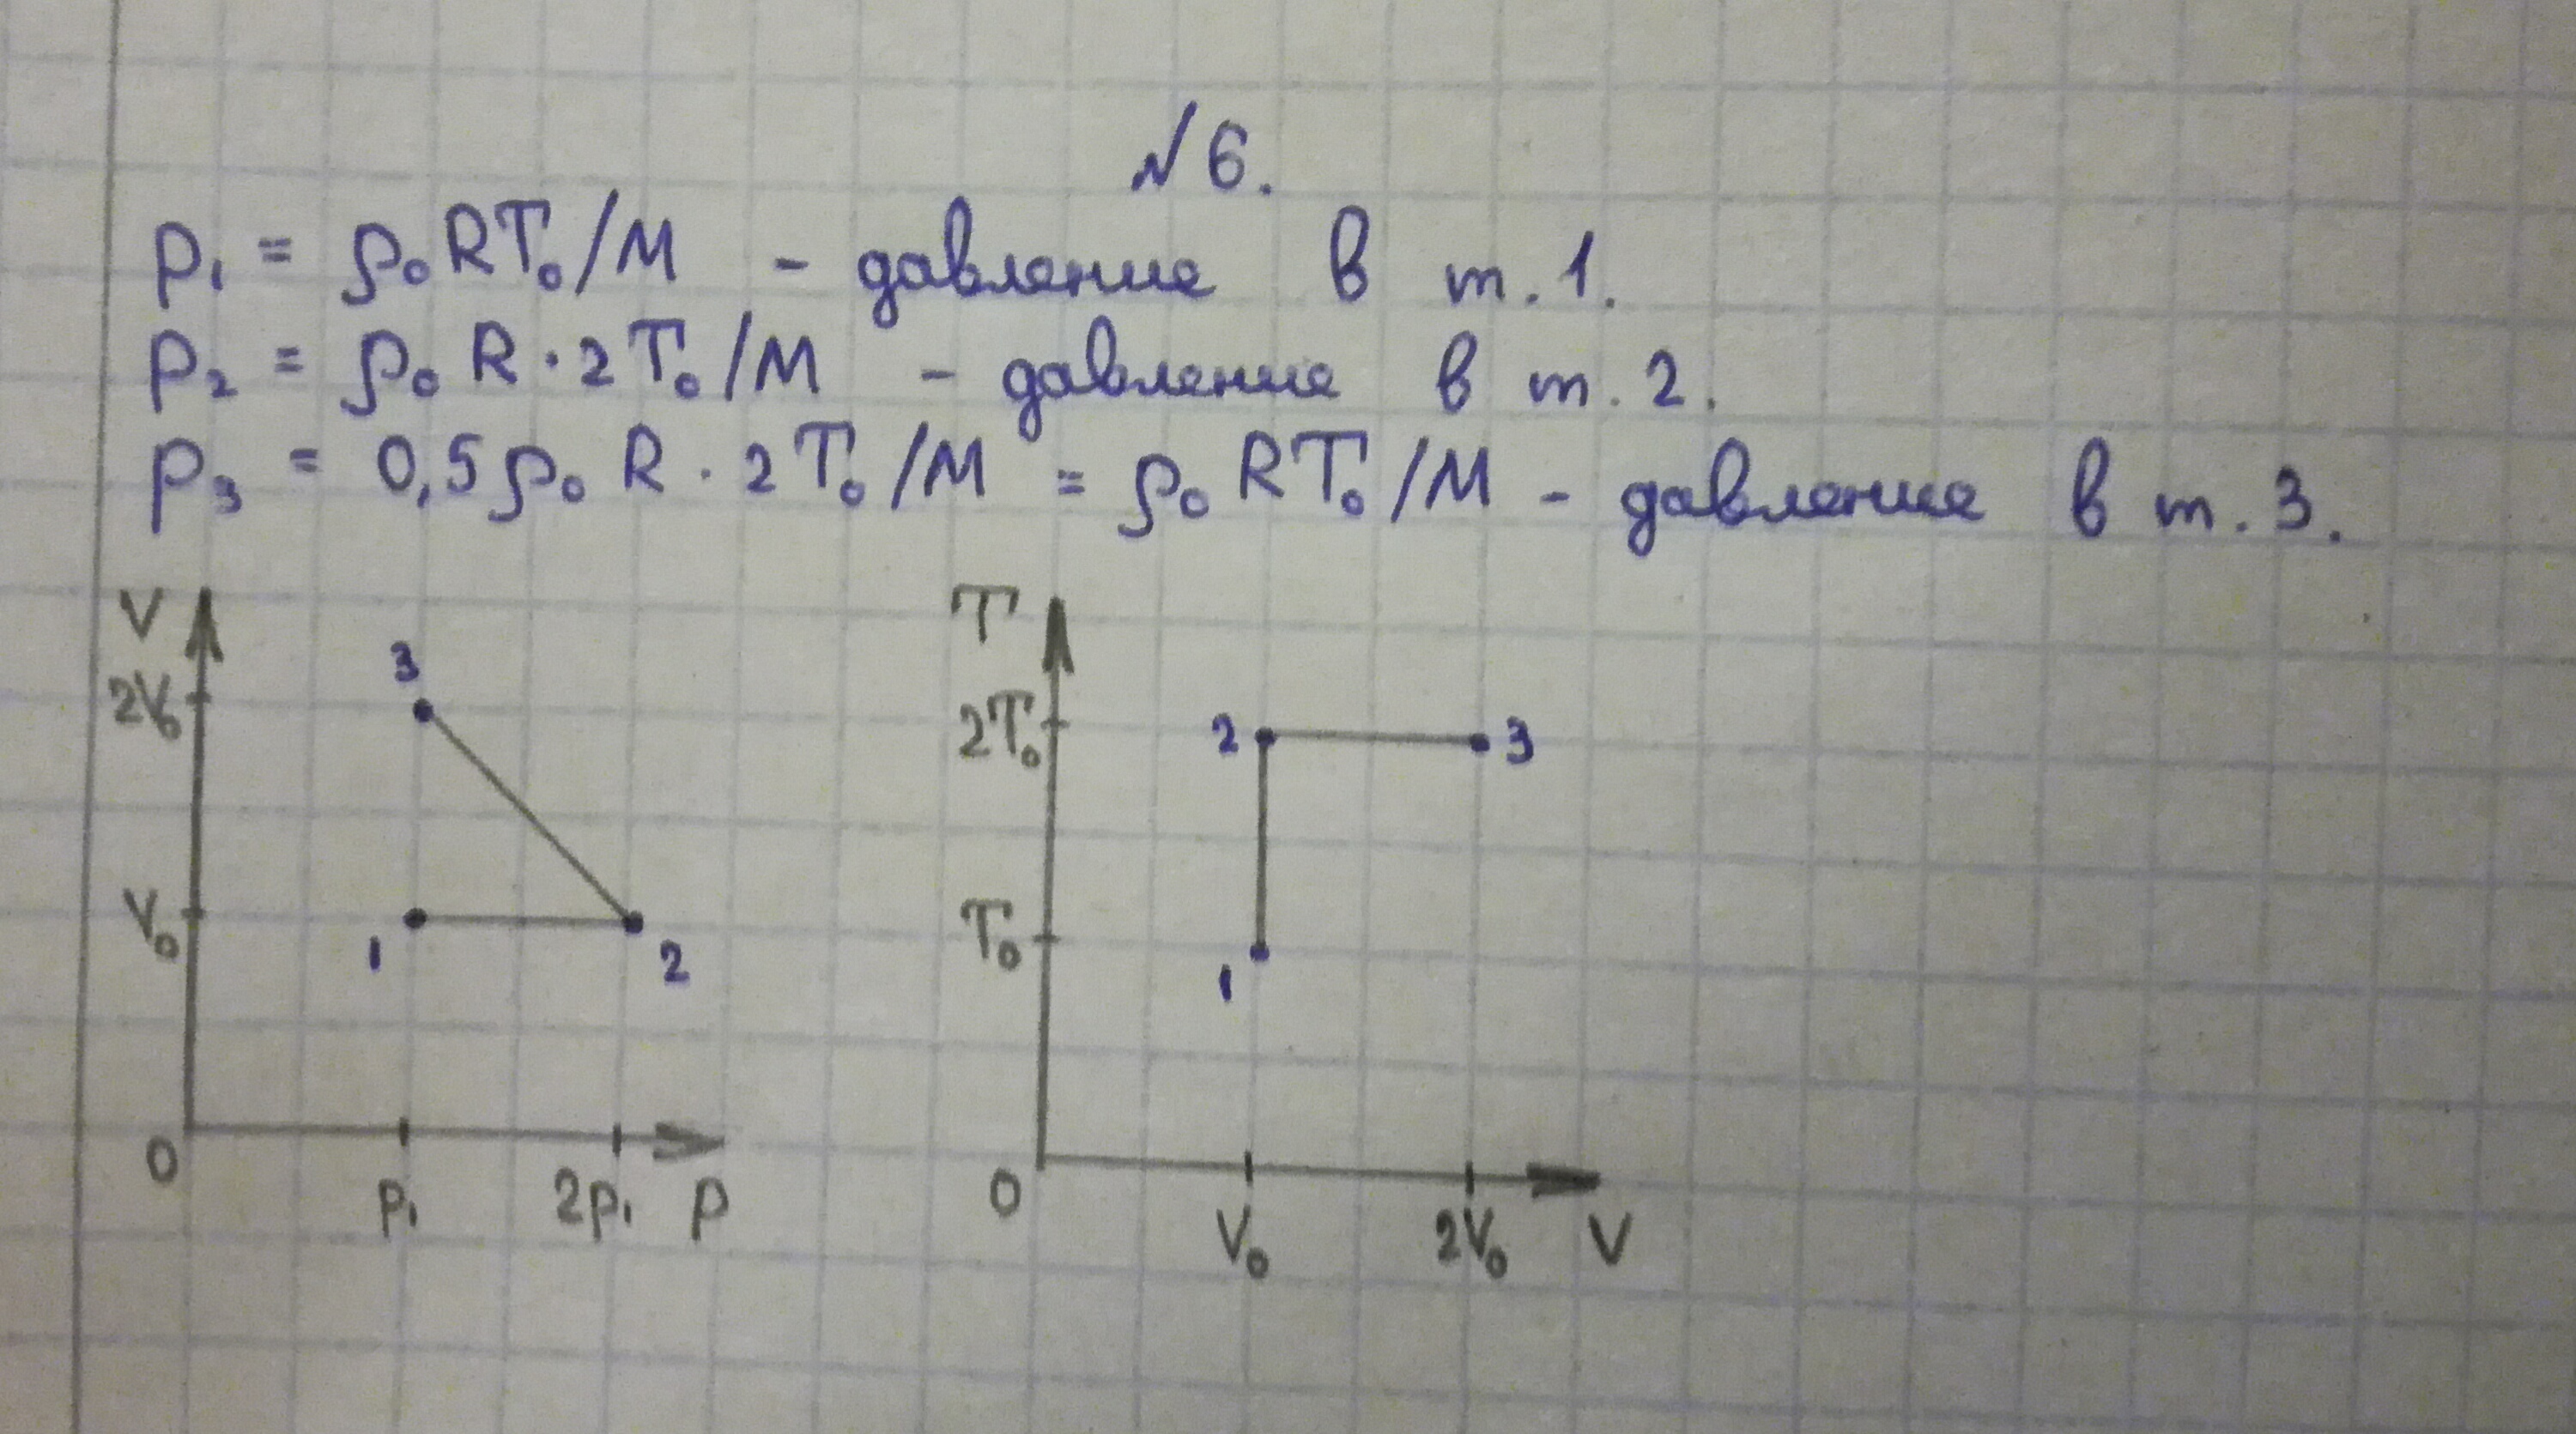 №6.
p₁ = ρ₀RT₀/M - давление в т.1.
p₂ = ρ₀R·2T₀/M - давление в т.2.
p₃ = 0,5ρ₀R·2T₀/M = ρ₀RT₀/M - давление в т.3.
V
2V₀
3
V₀
1
2
0
p₁
2p₁
p
T
2T₀
2
3
T₀
1
0
V₀
2V₀
V